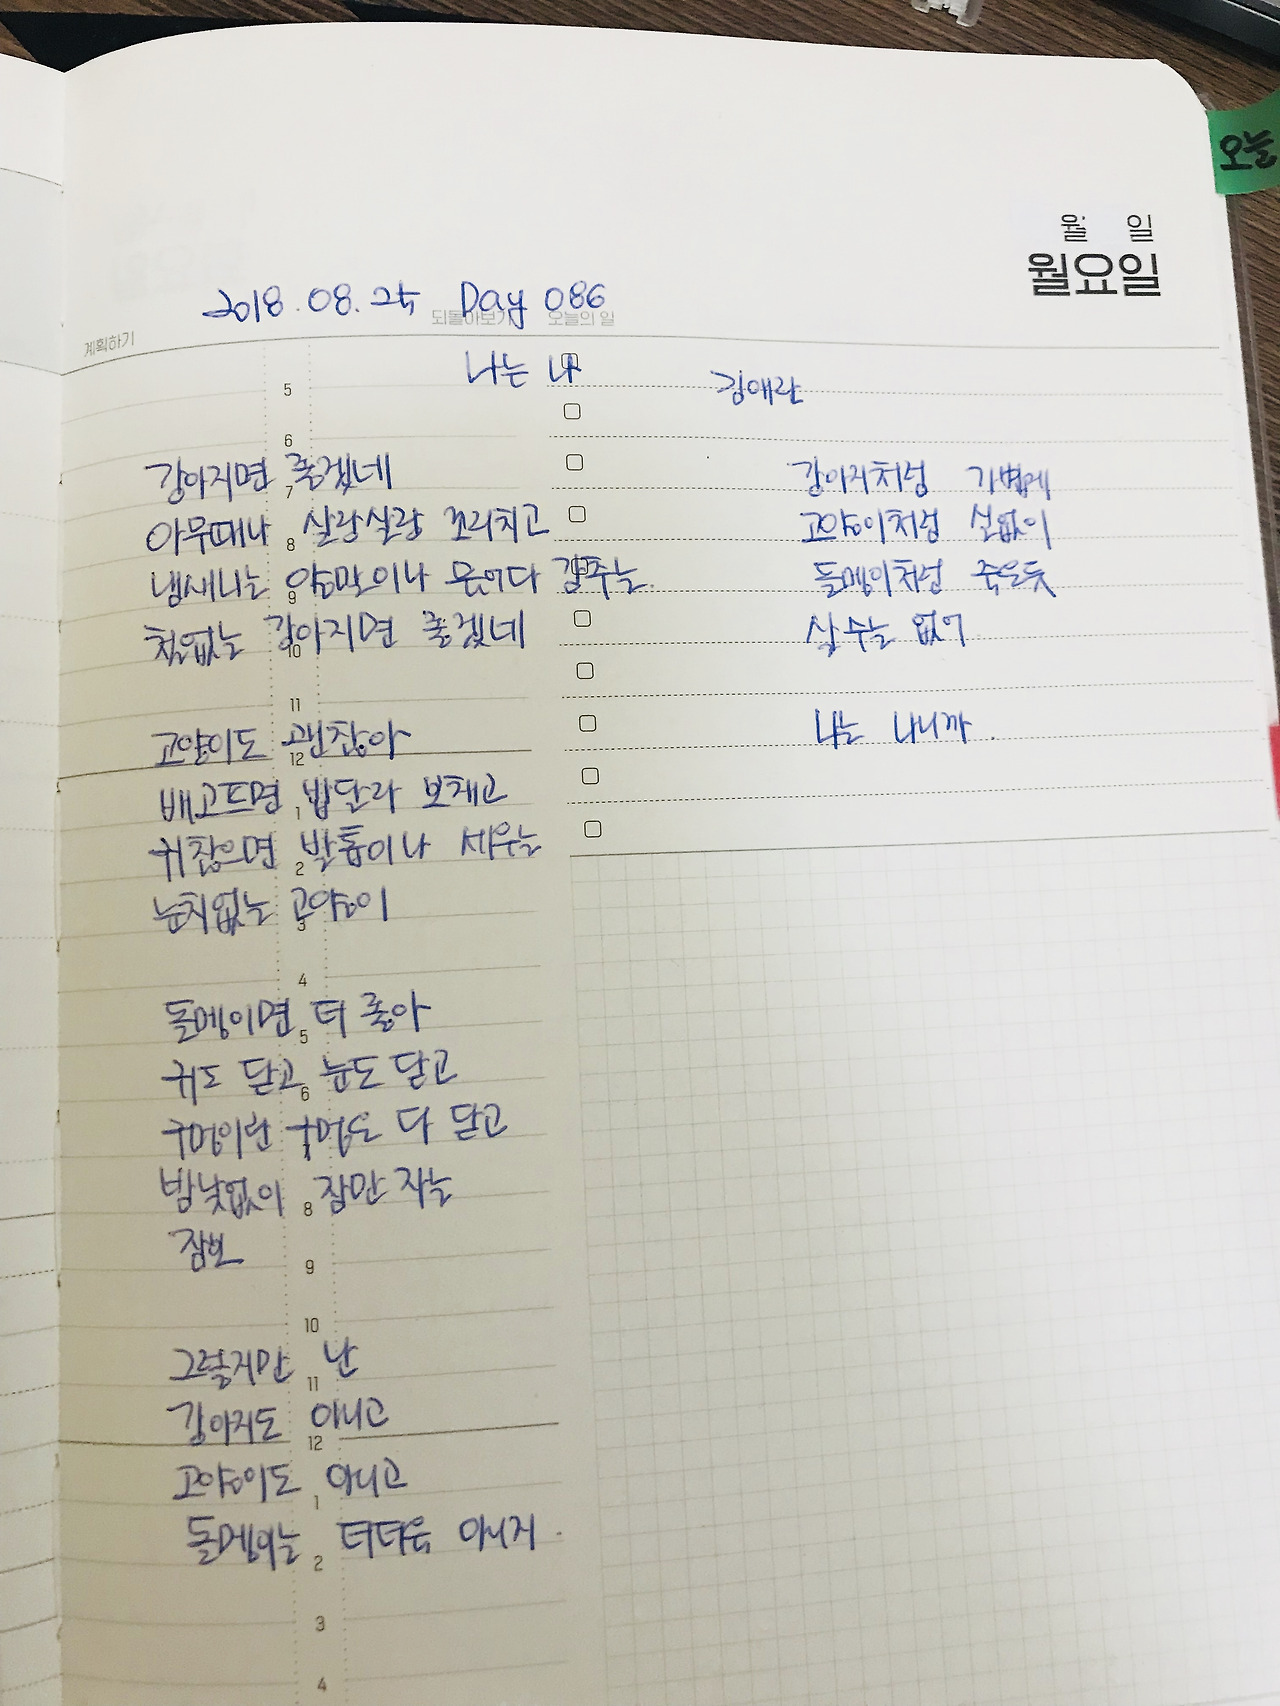 오늘
월 일
월요일
2018.08.25 Day 086
계획하기 되돌아보기 오늘의 일
나는 나
김애란
강아지면 좋겠네
아무때나 살랑살랑 꼬리치고
냄새나는 양말이나 물어다 주는
철없는 강아지면 좋겠네
고양이도 괜찮아
배고프면 밥달라 보채고
귀찮으면 발톱이나 세우는
눈치없는 고양이
돌멩이면 더 좋아
귀도 닫고 눈도 닫고
구멍이란 구멍은 다 닫고
밤낮없이 잠만 자는
잠보
그렇지만 난
강아지도 아니고
고양이도 아니고
돌멩이는 더더욱 아니지.
강아지처럼 가볍게
고양이처럼 실없이
돌멩이처럼 죽은듯
살 수는 없어
나는 나니까.
5
6
7
8
9
10
11
12
1
2
3
4
5
6
8
9
10
11
12
1
2
3
4